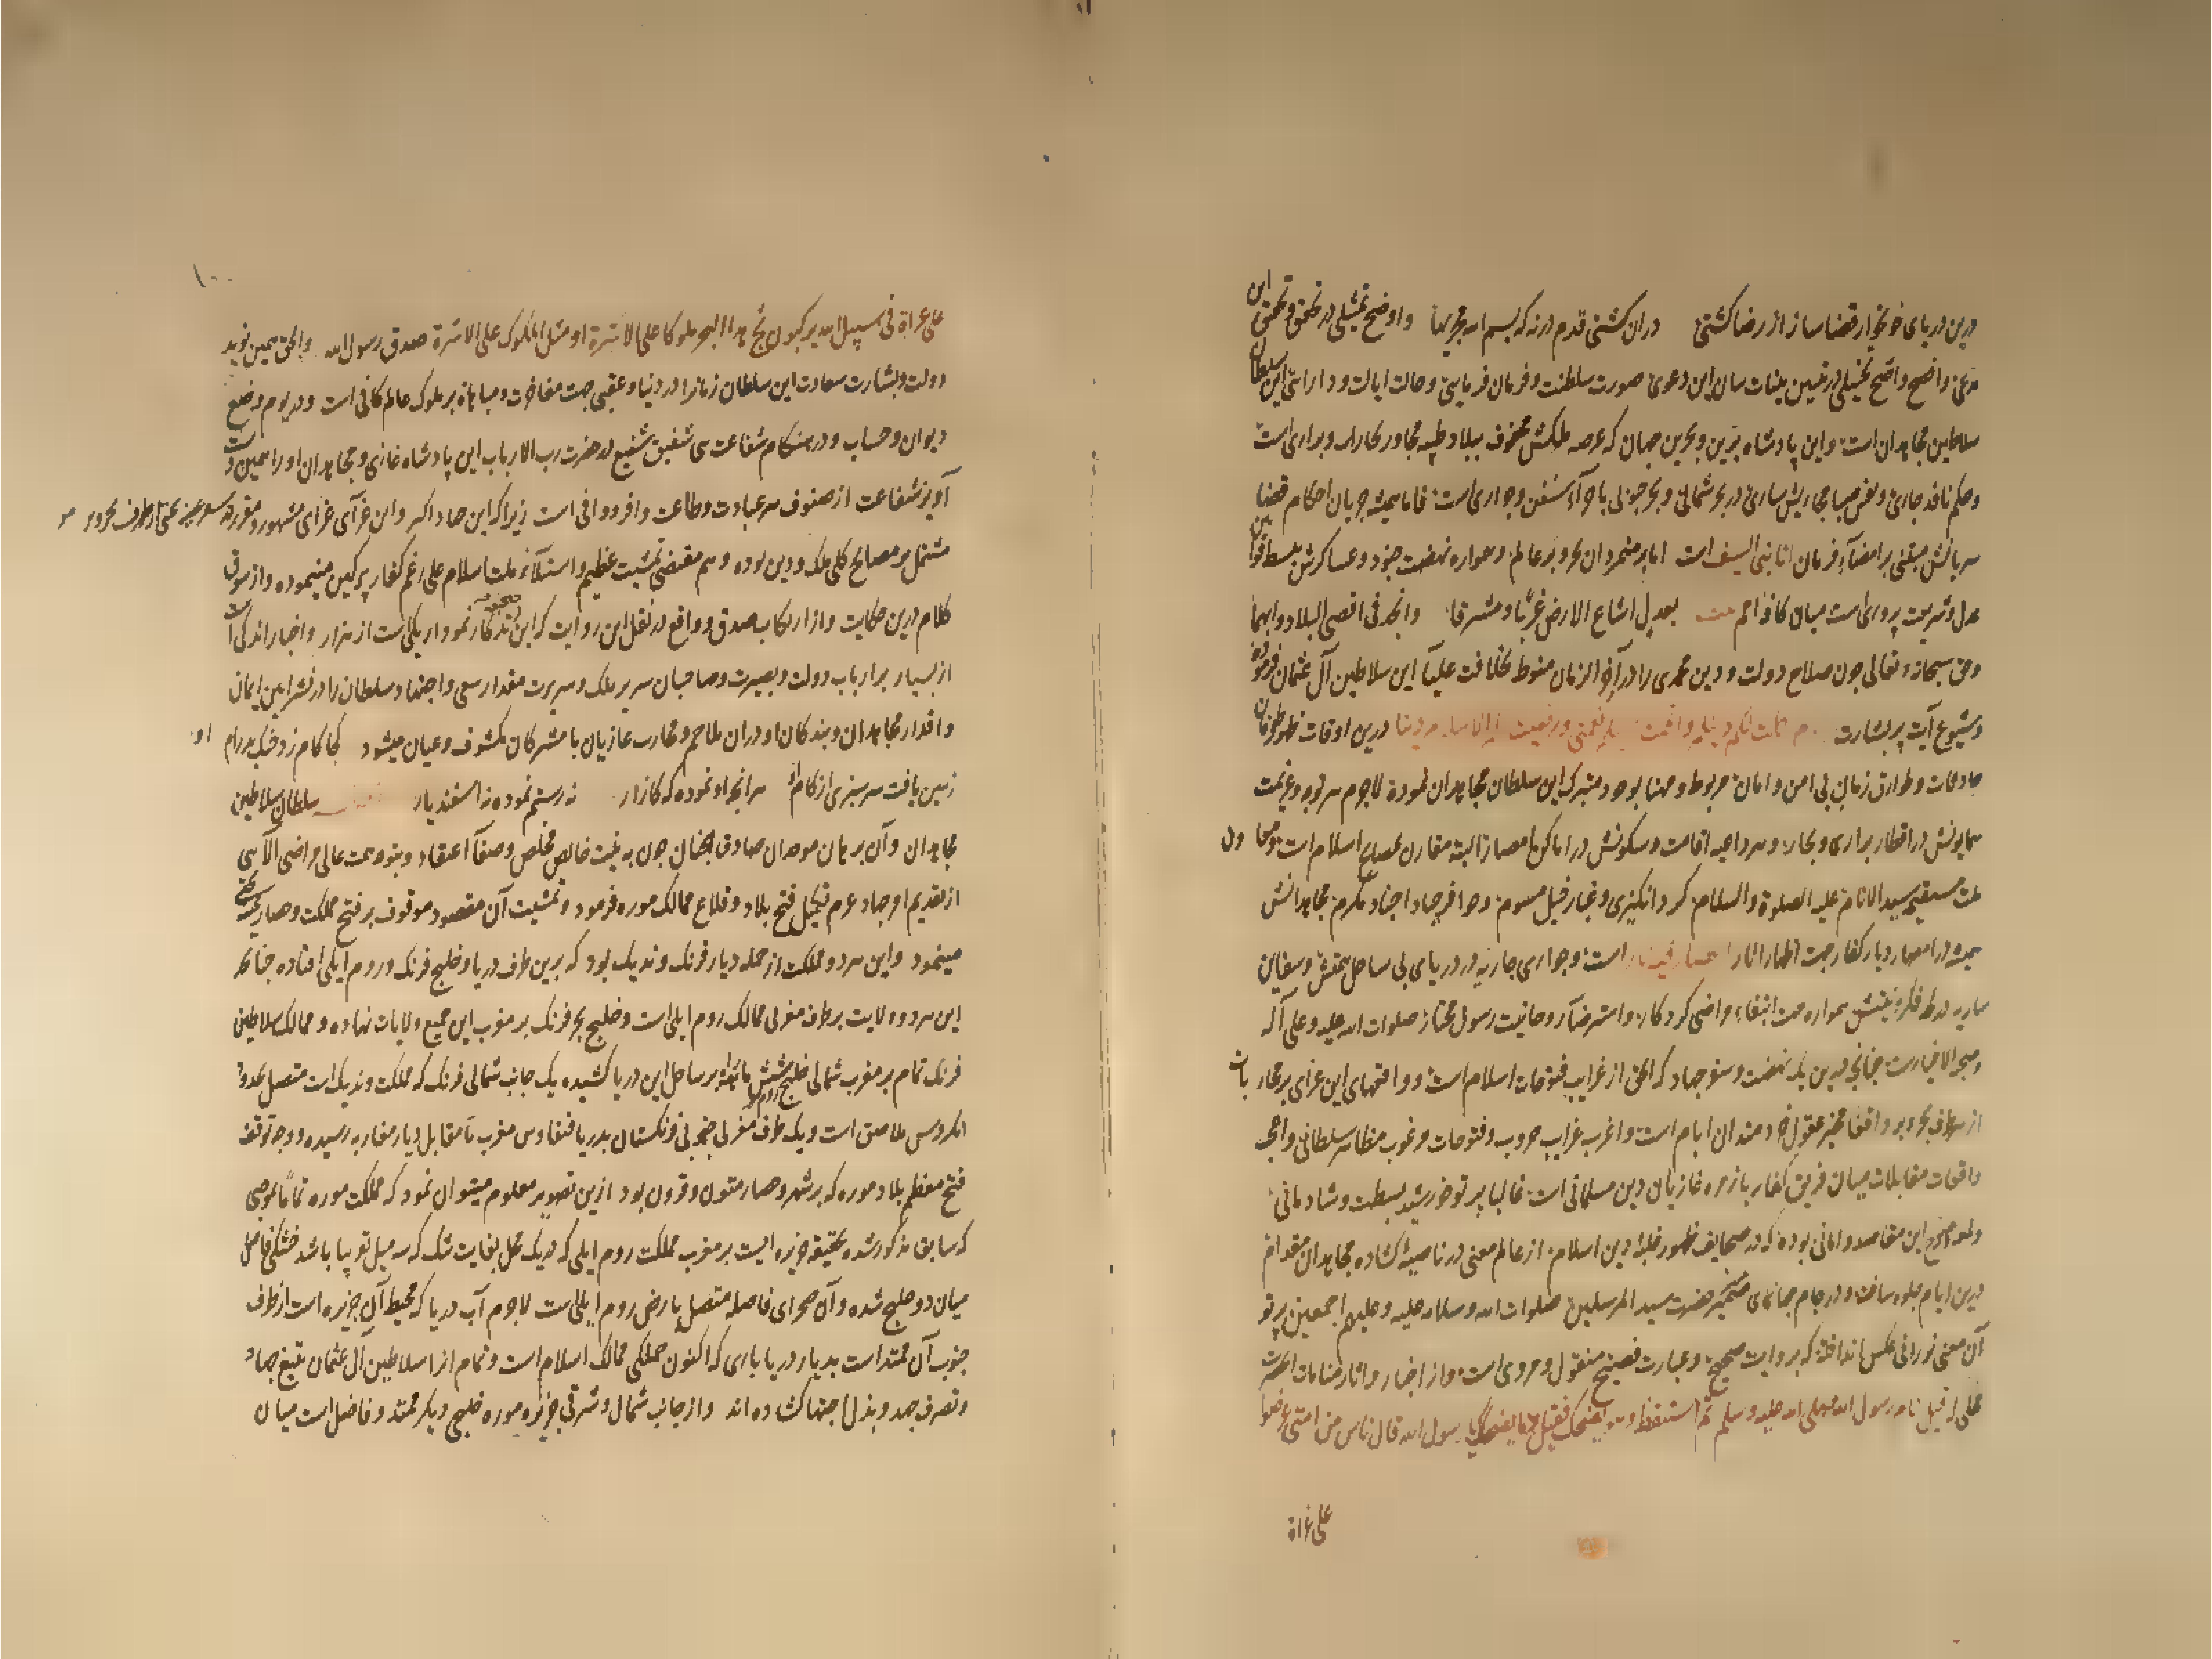 درین دریای خونخوار قضا ساز از رضا کشتی دران کشتی قدم در نه که بسم الله مجریها و اوضح تمثیلی در تحقق و تحقیق این
مدعی واضح و اصح تخیلی در تبیین بینات سان این دعوی صورت سلطنت و فرمان فرمایی و حالت ایالت و دارایی این سلطان
سلاطین مجاهدان است و این پادشاه برین و بحرین جهان که عرصه ملکش محفوف ببلاد طیبه مجاور بحار و براری است
و حکم نافذ جاری و نفس صبا مجاریش ساری در بحر شمالی و بحر جنوبی با جرآء سفن و جواری است فاما همیشه جریان احکام قضا
سریانش مبتنی بر امضآء فرمان انا نبی السیف است اما بر متمردان بحر و بر عالم و همواره نهضت جنود و عساکرش ببسط قوانین
عدل و شریعت پروری است میان کافه امم بعدل اشاع الارض غربا و مشرقا وانجد فی اقصی البلاد و ابهما
و حق سبحانه و تعالی چون صلاح دولت و دین محمدی را در آخر الزمان منوط بخلافت علیآء این سلاطین آل عثمان فرموده
و شیوع آیت پر بشارت الیوم اکملت لکم دینکم و اتممت علیکم نعمتی و رضیت لکم الاسلام دینا درین اوقات ظهور طوفان
حادثات و طوارق زمان بی امن و امان مربوط و مهنا بوجود متبرک این سلطان مجاهدان نموده لاجرم هر توجه و عزیمت
همایونش در اقطار براری و بحار و هر داعیه اقامت و سکونش در اماکن و امصار البته مقارن مصالح اسلام است و معاون
ملت مستقیم سید الانام علیه الصلوة والسلام کرد انکیزی و غبار خیل مسوم و حوافر جیاد اجناد مکرم مجاهدانش
همیشه در امصار دیار کفار جهت اظهار آثار است و جواری جاریه در دریای بی ساحل همتش و سفاین
ساریه در لجه فکر و نیتش همواره جهت ابتغاء مراضی کردکار و استرضآء روحانیت رسول مختار صلوات الله علیه و علی آله
و صحبه الاخیارست چنانچه درین یک نهضت و سنوح جهاد که الحق از غرایب فتوحات اسلام است و واقعهای این غزای پر محاربات
از طرف بحر و بر واقعا محیر عقول خردمندان ایام است و اغرب غرایب حروب و فتوحات مرغوب مظاهر سلطانی و اعجب
واقعات مقابلات میان فریق کفار با زمره غازیان دین مسلمانی است غالبا پرتو خورشید بسطت و شادمانی
و لمعه صبح این مقاصد و امانی بوده که در صحایف ظهور غلبه دین اسلام از عالم معنی در ناصیه کشاده مجاهدان مقدام
درین ایام جلوه ساخت و در جام جهانمای ضمیر حضرت سید المرسلین صلوات الله و سلامه علیه و علیهم اجمعین پرتو
آن معنی نورانی عکس انداخته که بروایت صحیح و عبارت فصیح منقول و مروی است و از اخبار و اثار منامات آنحضرت
نام رسول الله صلی الله علیه و سلم ثم استیقظ و هو یضحک فقیل ما یضحکک یا رسول الله قال ناس من امتی عرضوا
علی غزاة
۱۰۰
علی غزاة فی سبیل الله یرکبون ثبج هذا البحر ملوکا علی الاسرة او مثل الملوک علی الاسرة صدق رسول الله والحق همین نوید
دولت و بشارت سعادت این سلطان زمانرا در دنیا و عقبی جهت مفاخرت و مباهاة بر ملوک عالم کافی است و در یوم وضع
دیوان و حساب و در هنکام شفاعت هر شفیق شفیع لدی حضرت رب الارباب این پادشاه غازی و مجاهدان او را همین دست
آویز شفاعت از صنوف هر عبادت و طاعت وافر و وافی است زیرا که این جهاد اکبر و این غزآی غزای مشهور و مقرر از طرف بحر و بر
مشتمل بر مصالح کلی ملک و دین بوده و هم مقتضی تمشیت عظیم و استیلآء ملت اسلام علی رغم کفار پر کین مینموده و از سوق
کلام درین حکایت و از ارتکاب صدق و واقع در نقل این روایت که این نمودار یکی است از هزار و اخبار اندکی است
از بسیار بر ارباب دولت و بصیرت و صاحبان سریر ملک و سریرت مقدار سعی و اجتهاد سلطان را در نشر اعین ایمان
و اقدار مجاهدان و بندکان او در آن ملاحم و محارب غازیان با مشرکان مکشوف و عیان میشود کجا کام زد خنک بدرام او
زمین یافت سرسبزی از کام او هر آنچه او نموده که کارزار نه رستم نموده نه اسفندیار سلطان سلاطین
مجاهدان و آن برهان موحدان صادق الجنان چون به نیت خالص مخلص و صفآء اعتقاد و بتوجه همت عالی مراضی الآهی
از تقدیم او جهاد عزم تکمیل فتح بلاد و قلاع ممالک موره فرمود و تمشیت آن مقصود موقوف بر فتح مملکت و حصار
مینمود و این هر دو مملکت از جمله دیار فرنک وندیک بود که برین طرف دریا و خلیج فرنک و روم ایلی افتاده چنانکه
این هر دو ولایت بر طرف مغربی ممالک روم ایلی است و خلیج بحر فرنک بر مغرب این جمیع ولایات نهاده و ممالک سلاطین
فرنک تمام بر مغرب شمالی خلیج بر ساحل این دریا کشیده یک جانب شمالی فرنک که مملکت وندیک است متصل بحدود
انکروس ملاصق است و یک طرف مغربی جنوبی فرنکستان بدریا مغرب تا مقابل دیار مغاربه رسیده و وجه توقف
فتح معظم بلاد موره که بر شهر و حصار متون و قرون بود ازین تصویر معلوم میتوان نمود که مملکت موره تماما بنوعی
که سابقا مذکور شده بحقیقه جزیره ایست بر مغرب مملکت روم ایلی که در یک محل بغایت تنک که سه میل تقریبا باشد خشکی فاصل
میان دو خلیج شده و آن صحرای فاصله متصل بارض روم ایلی است لاجرم آب دریا که محیط آن جزیره است از طرف
جنوب آن ممتد است بدیار دریا باری که اکنون جملکی ممالک اسلام است و تمام از سلاطین آل عثمان بتیغ جهاد
و تصرف جد و بذل اجتهاد کشاده اند و از جانب شمال و شرقی جزیره موره خلیجی دیکر ممتد و فاصل است میان